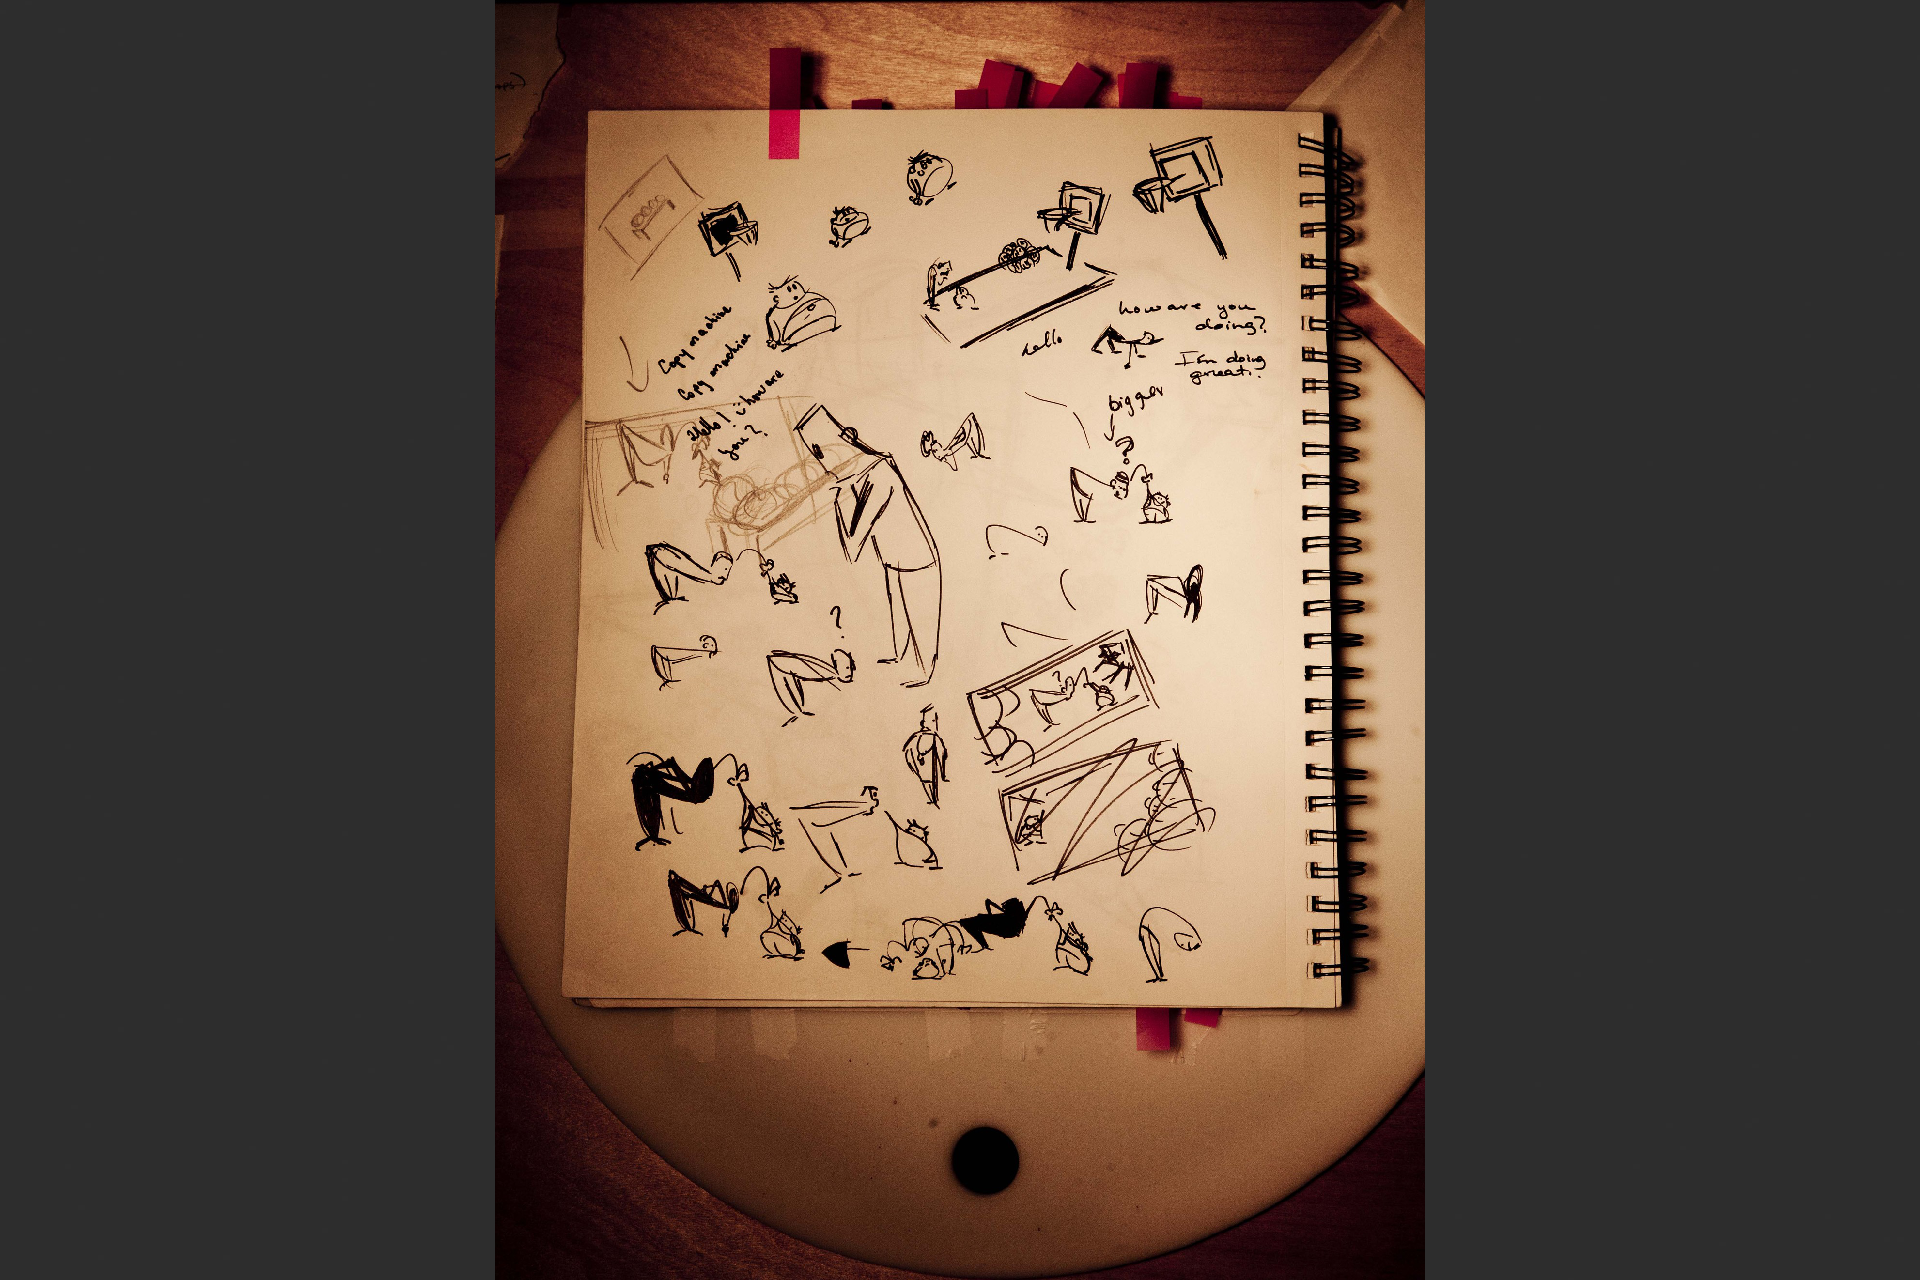 Copy machine
Copy machine
Hello! how are
you?
hello
how are you
doing?
I'm doing
great.
bigger
?
?
?